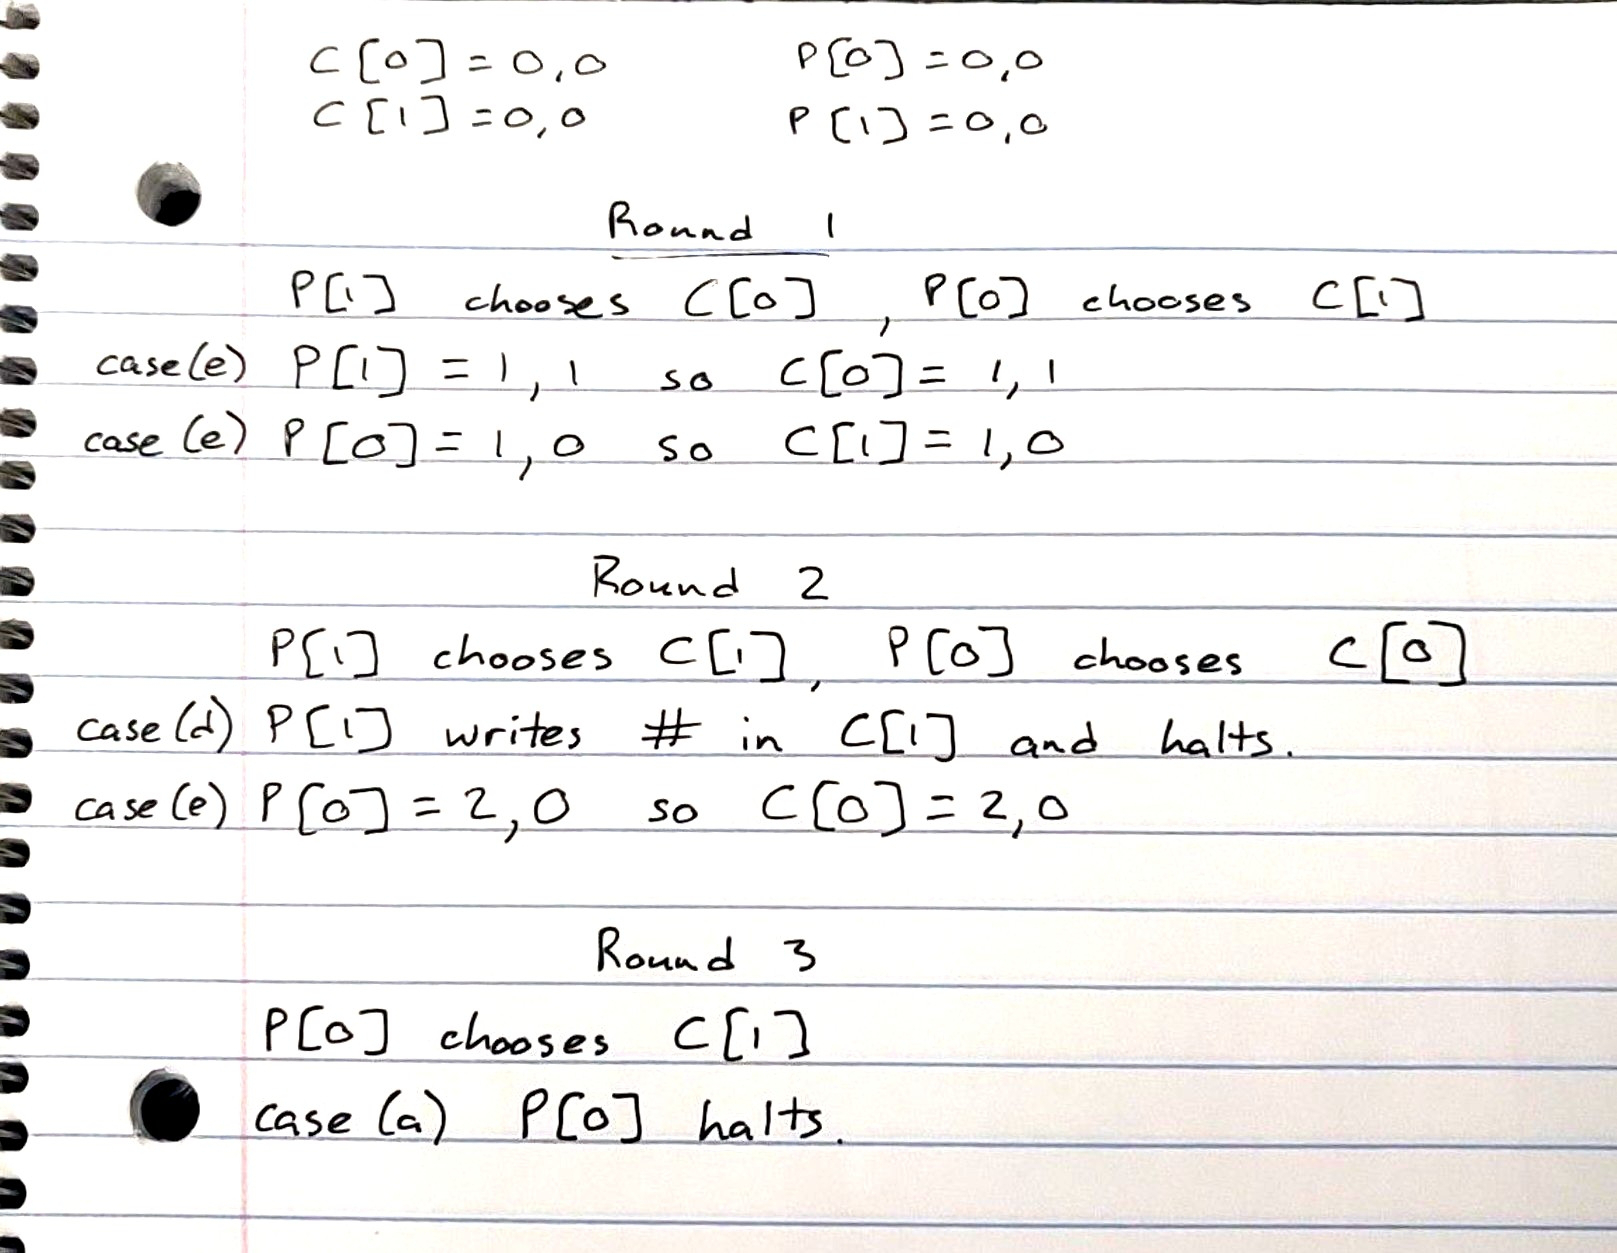 C[0] = 0,0 P[0] = 0,0
C[1] = 0,0 P[1] = 0,0
Round 1
P[1] chooses C[0], P[0] chooses C[1]
case (e) P[1] = 1,1 so C[0] = 1,1
case (e) P[0] = 1,0 so C[1] = 1,0
Round 2
P[1] chooses C[1], P[0] chooses C[0]
case (d) P[1] writes # in C[1] and halts.
case (e) P[0] = 2,0 so C[0] = 2,0
Round 3
P[0] chooses C[1]
case (a) P[0] halts.